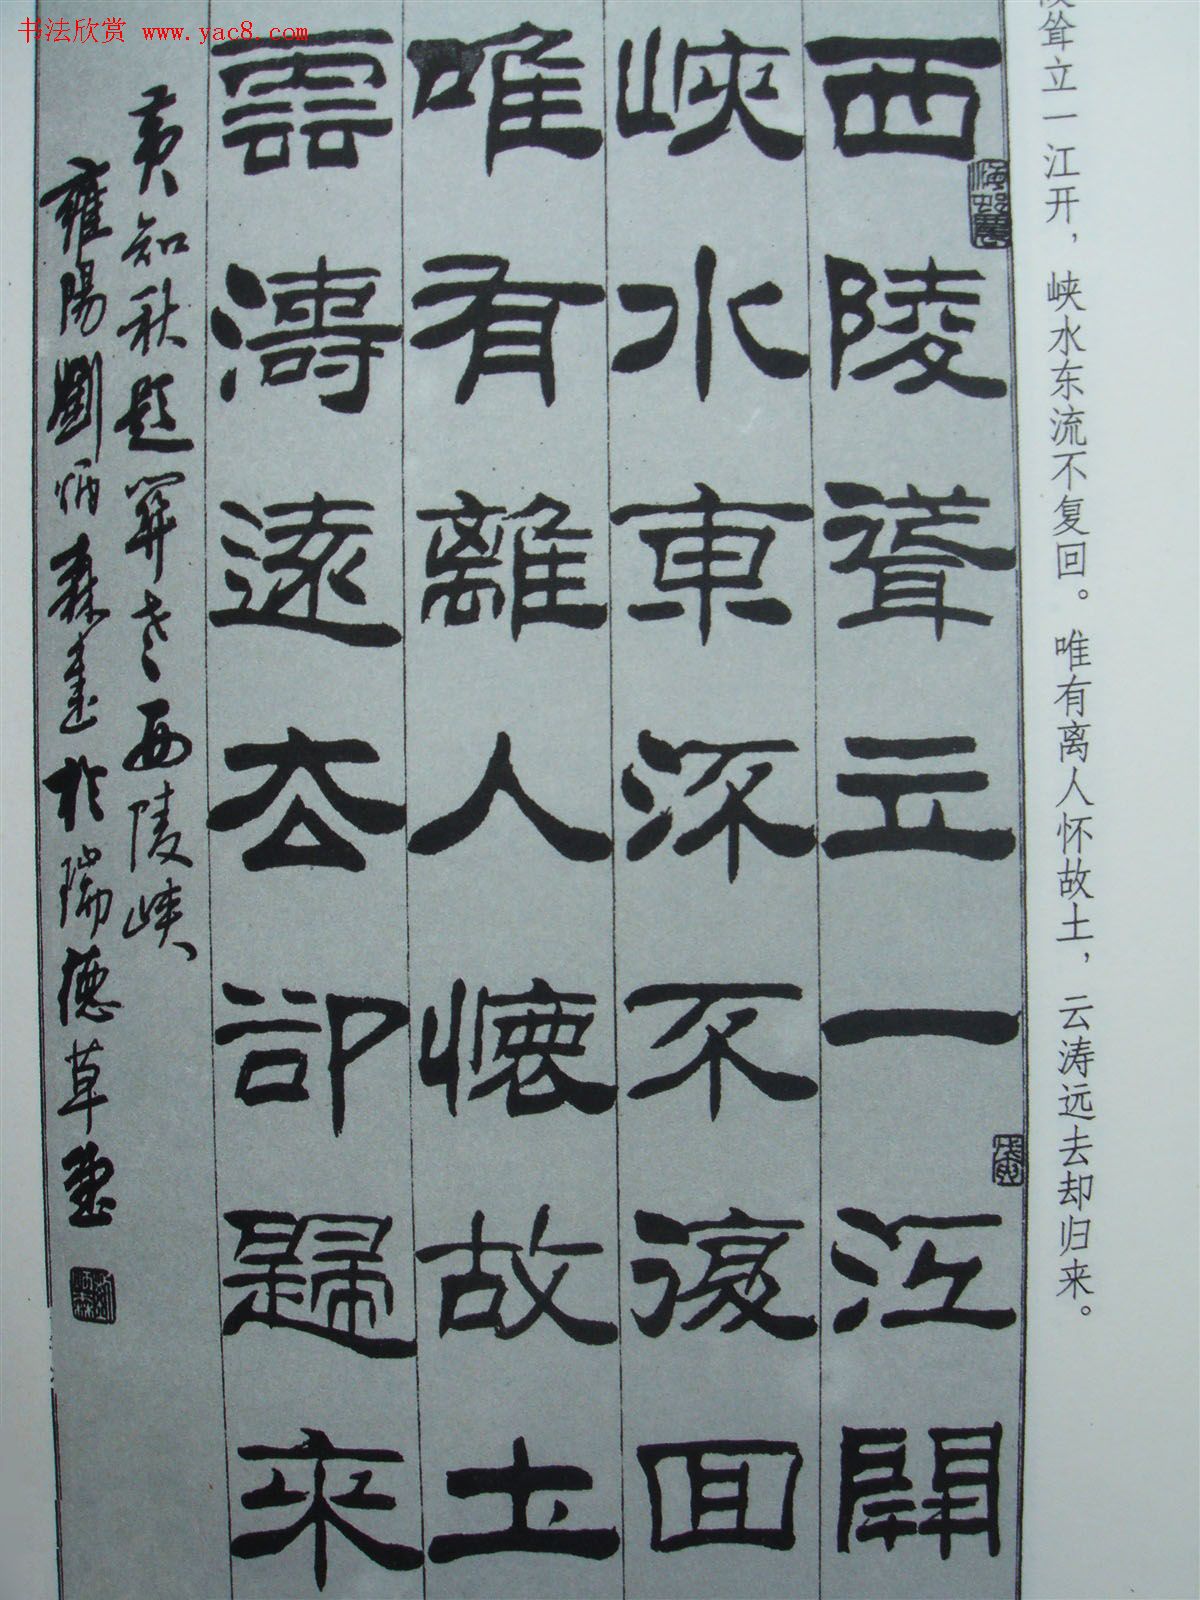 书法欣赏 www.yac8.com
陵耸立一江开，峡水东流不复回。唯有离人怀故土，云涛远去却归来。
西陵聳立一江開
峽水東流不復回
唯有離人懷故土
雲濤遠去卻歸來
知秋題西陵峽
雍陽劉炳森書於瑞德草堂